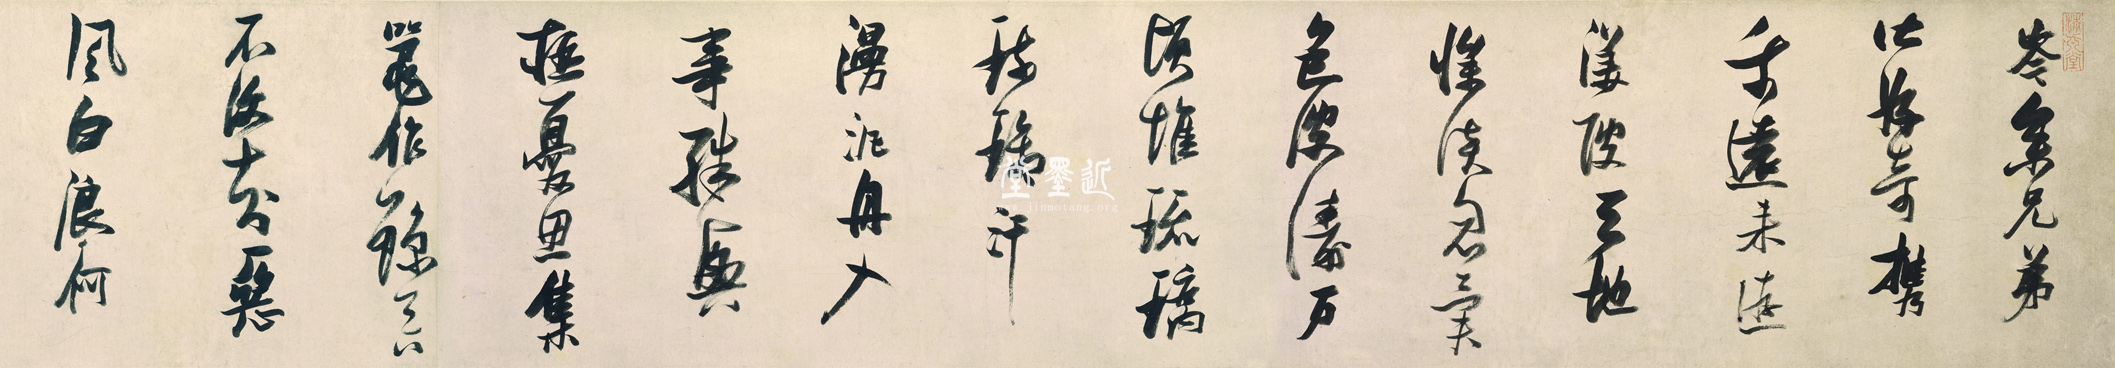 岑參兄弟
皆好奇攜
我遠来遊
渼陂天地
慘淡忽異
色波濤万
頃堆琉璃
琉璃汗
漫泛舟入
事殊興
極憂思集
鼉作鯨吞
不復知惡
風白浪何
近墨堂
www.jinmotang.org